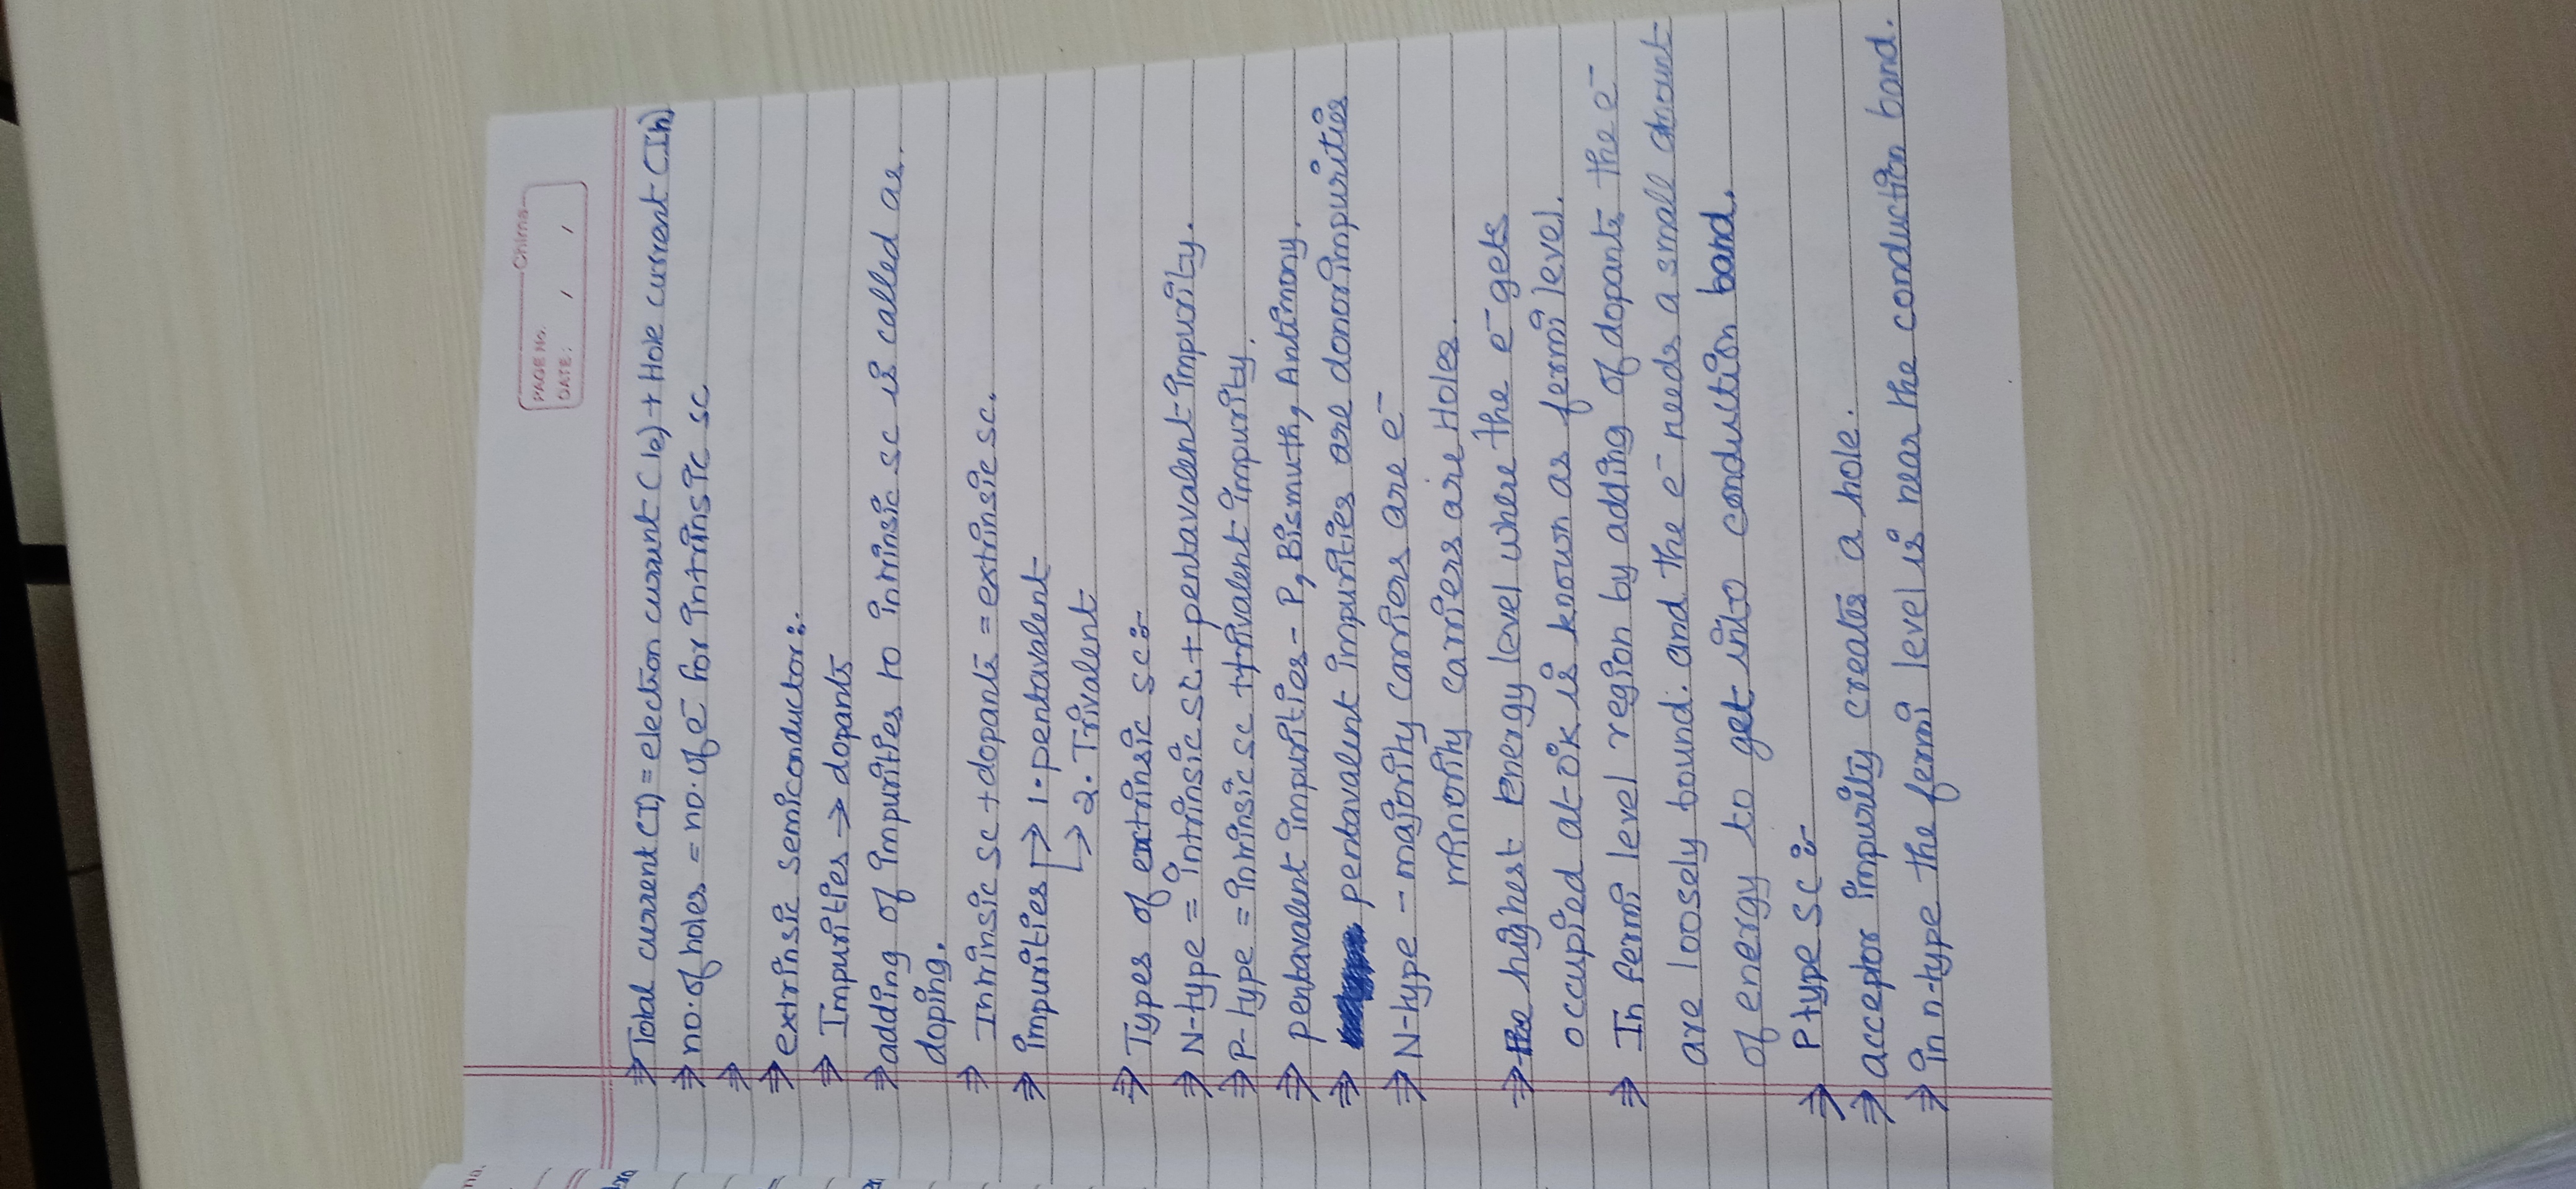 Chima
PAGE No.
DATE: / /
⇒ Total current (I) = election current (Ie) + Hole current (Ih)
⇒ no. of holes = no. of e⁻ for intrinsic sc
⇒
⇒ extrinsic semiconductor:-
⇒ Impurities → dopants
⇒ adding of impurities to intrinsic sc is called as
doping.
⇒ Intrinsic sc + dopants = extrinsic sc.
⇒ impurities → 1. pentavalent
→ 2. Trivalent
⇒ Types of extrinsic sc:-
⇒ N-type = intrinsic sc + pentavalent impurity.
⇒ P-type = inrinsic sc + trivalent impurity.
⇒ pentavalent impurities - P, Bismuth, Antimony.
⇒ pentavalent impurities are donor impurities
⇒ N-type - majority carriers are e⁻
minority carriers are Holes.
⇒ the highest energy level where the e⁻ gets
occupied at 0k is known as fermi level.
⇒ In fermi level region by adding of dopants the e⁻
are loosely bound. and the e⁻ needs a small amount
of energy to get into conduction band.
⇒ P type sc:-
⇒ acceptor impurity creates a hole.
⇒ in n-type the fermi level is near the conduction band.